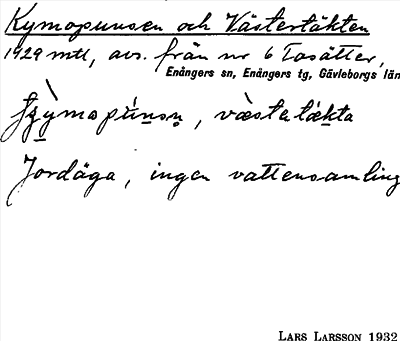 Kymopunsen och Västertäkten
1929 mtl, avs. från nr 6 Tosätter,
Enångers sn, Enångers tg, Gävleborgs län
Jordäga, ingen vattensamling
LARS LARSSON 1932